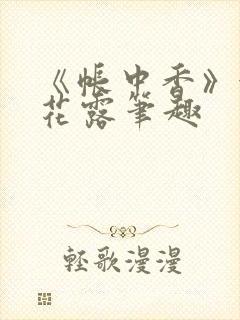 《帐中香》
花露笔趣
轻歌漫漫